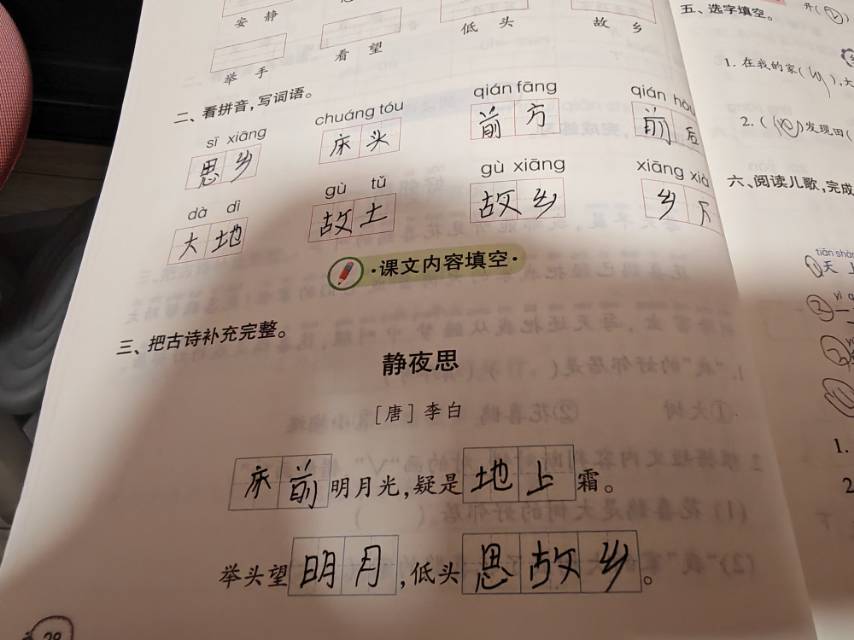 安静
低头
故乡
举手
看望
二、看拼音，写词语。
sī xiāng
chuáng tóu
qián fāng
qián
思乡
床头
前方
前后
dà dì
gù tǔ
gù xiāng
xiāng xià
大地
故土
故乡
乡下
·课文内容填空·
三、把古诗补充完整。
静夜思
［唐］李白
床前明月光，疑是地上霜。
举头望明月，低头思故乡。
五、选字填空。
1. 在我的家(
2. (
)发现田(
六、阅读儿歌，完成
天
1.
2